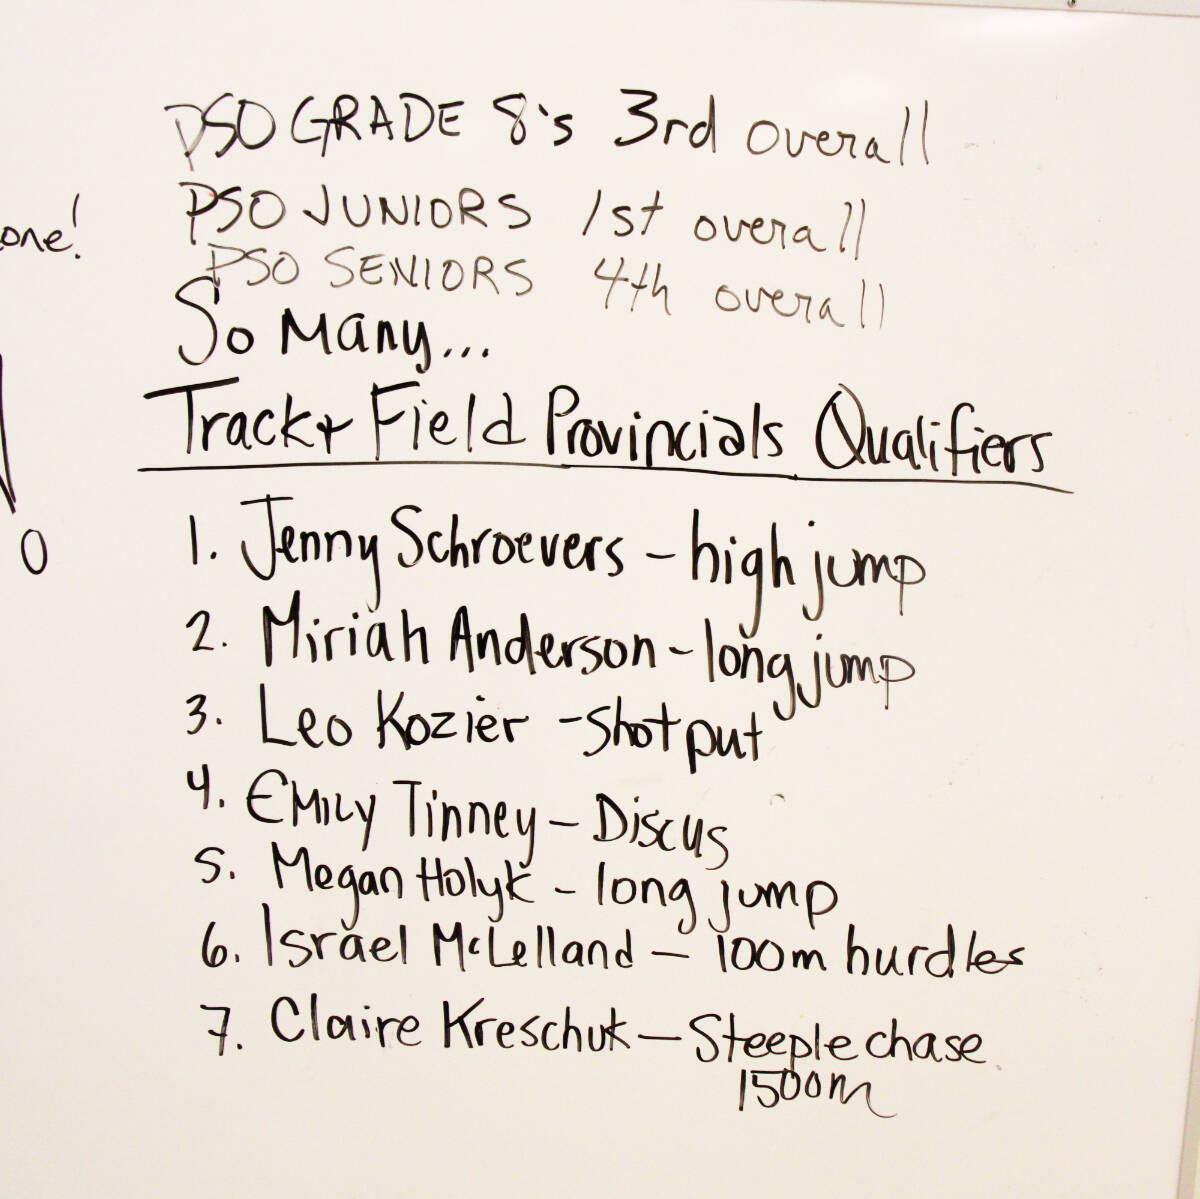 PSO GRADE 8's 3rd overall
PSO JUNIORS 1st overall
one!
PSO SENIORS 4th overall
So Many...
Track + Field Provincials Qualifiers
1. Jenny Schroevers - high jump
2. Miriah Anderson - long jump
3. Leo Kozier - Shot put
4. EMILY Tinney - Discus
5. Megan Holyk - long jump
6. Israel McLelland - 100m hurdles
7. Claire Kreschuk - Steeple chase
1500m